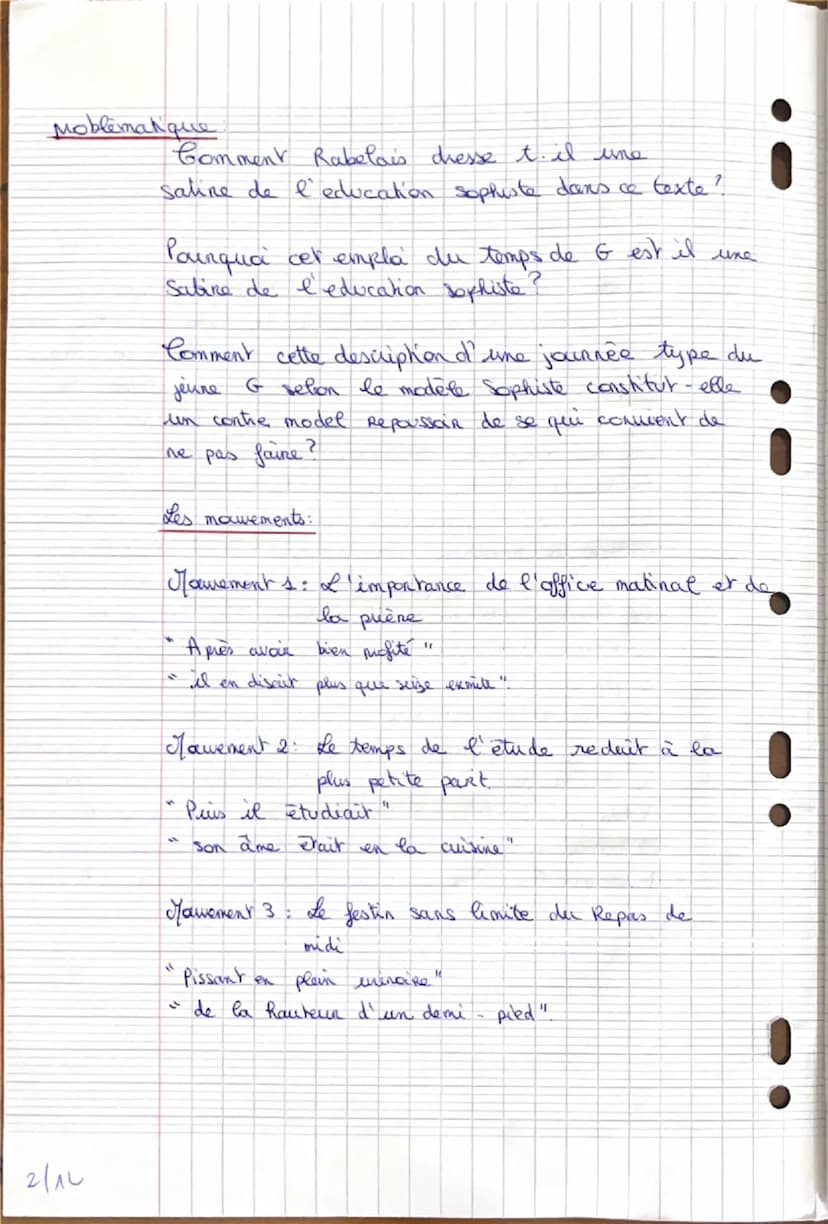 Problématique:
Comment Rabelais dresse t-il une
satire de l'education sophiste dans ce texte?
Pourquoi cet emploi du temps de G est il une
Satire de l'education sophiste?
Comment cette description d'une journée type du
jeune G selon le modèle Sophiste constitut-elle
un contre model repoussoir de se qui convient de
ne pas faire?
Les mouvements:
Mouvement 1: L'importance de l'office matinal et de
la prière
"Après avoir bien profité"
"il en disait plus que seize ermite".
Mouvement 2: Le temps de l'étude reduit à la
plus petite part.
"Puis il étudiait"
"son âme était en la cuisine"
Mouvement 3: Le festin sans limite du Repas de
midi
"Pissant en plein urinoire"
"de la hauteur d'un demi-pied".
2/12